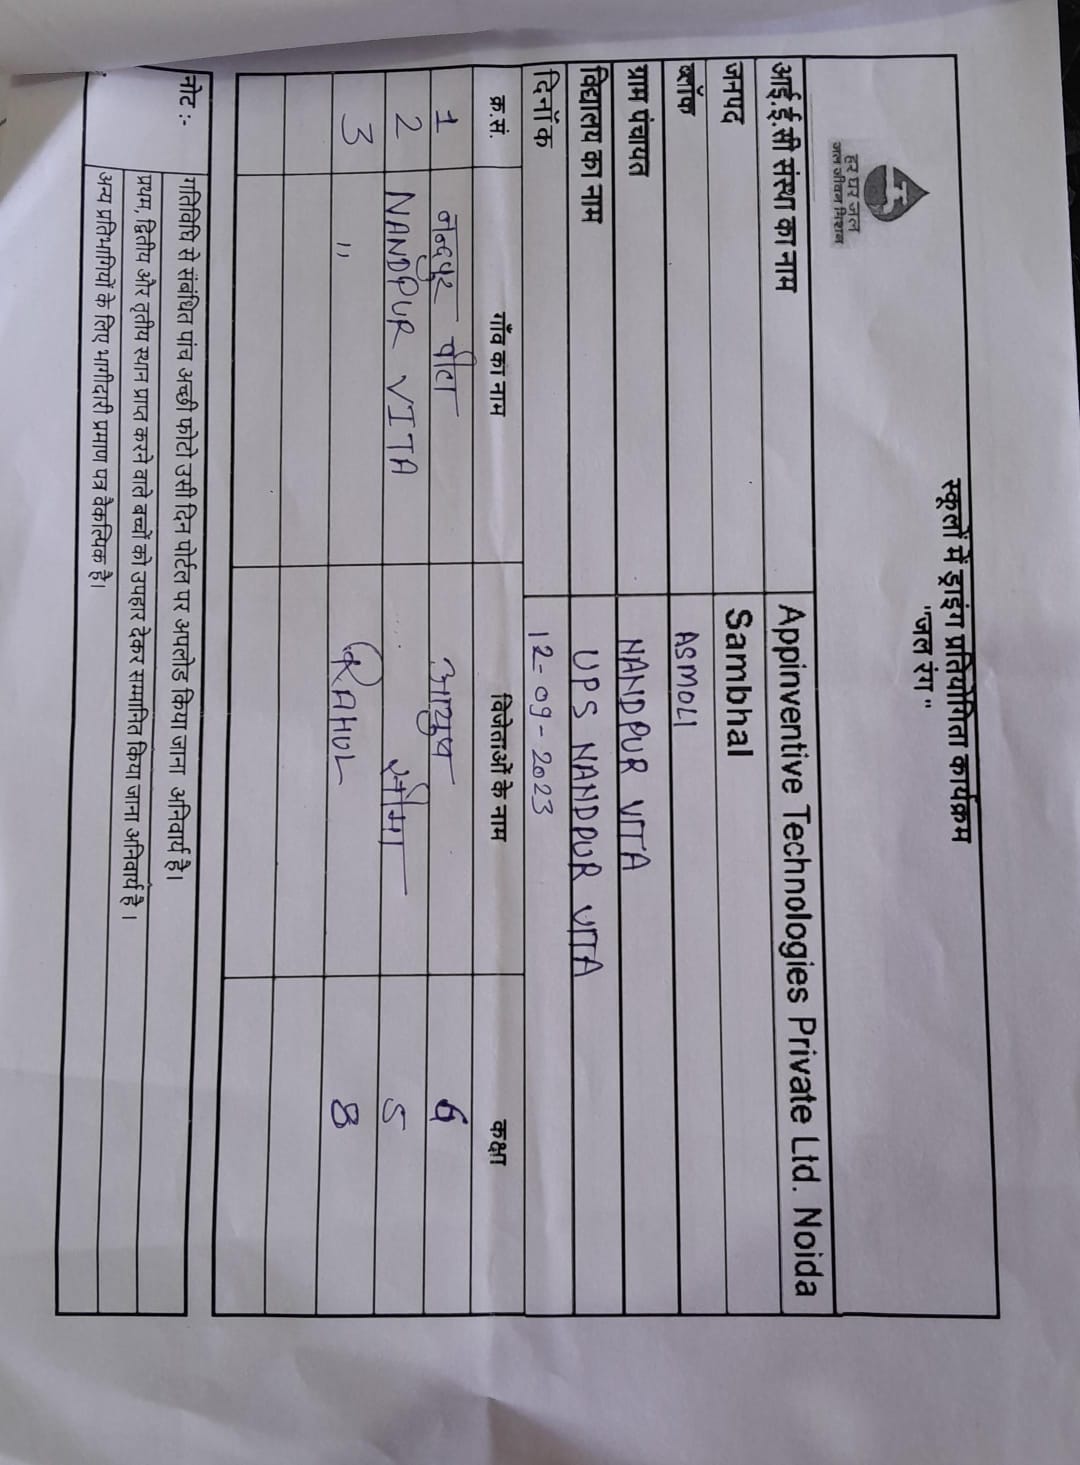 हर घर जल
जल जीवन मिशन
स्कूलों में ड्राइंग प्रतियोगिता कार्यक्रम
"जल रंग"
आई.ई.सी संस्था का नाम Appinventive Technologies Private Ltd. Noida
जनपद Sambhal
ब्लॉक ASMOLI
ग्राम पंचायत NANDPUR VITA
विद्यालय का नाम UPS NANDPUR VITA
दिनाँक 12-09-2023
क्र.सं. गाँव का नाम विजेताओं के नाम कक्षा
1 नन्दपुर वीटा आयुष 6
2 NANDPUR VITA सीमा 5
3 ,, RAHUL 8
नोट :- गतिविधि से संबंधित पांच अच्छी फोटो उसी दिन पोर्टल पर अपलोड किया जाना अनिवार्य है।
प्रथम, द्वितीय और तृतीय स्थान प्राप्त करने वाले बच्चों को उपहार देकर सम्मानित किया जाना अनिवार्य है ।
अन्य प्रतिभागियों के लिए भागीदारी प्रमाण पत्र वैकल्पिक है।